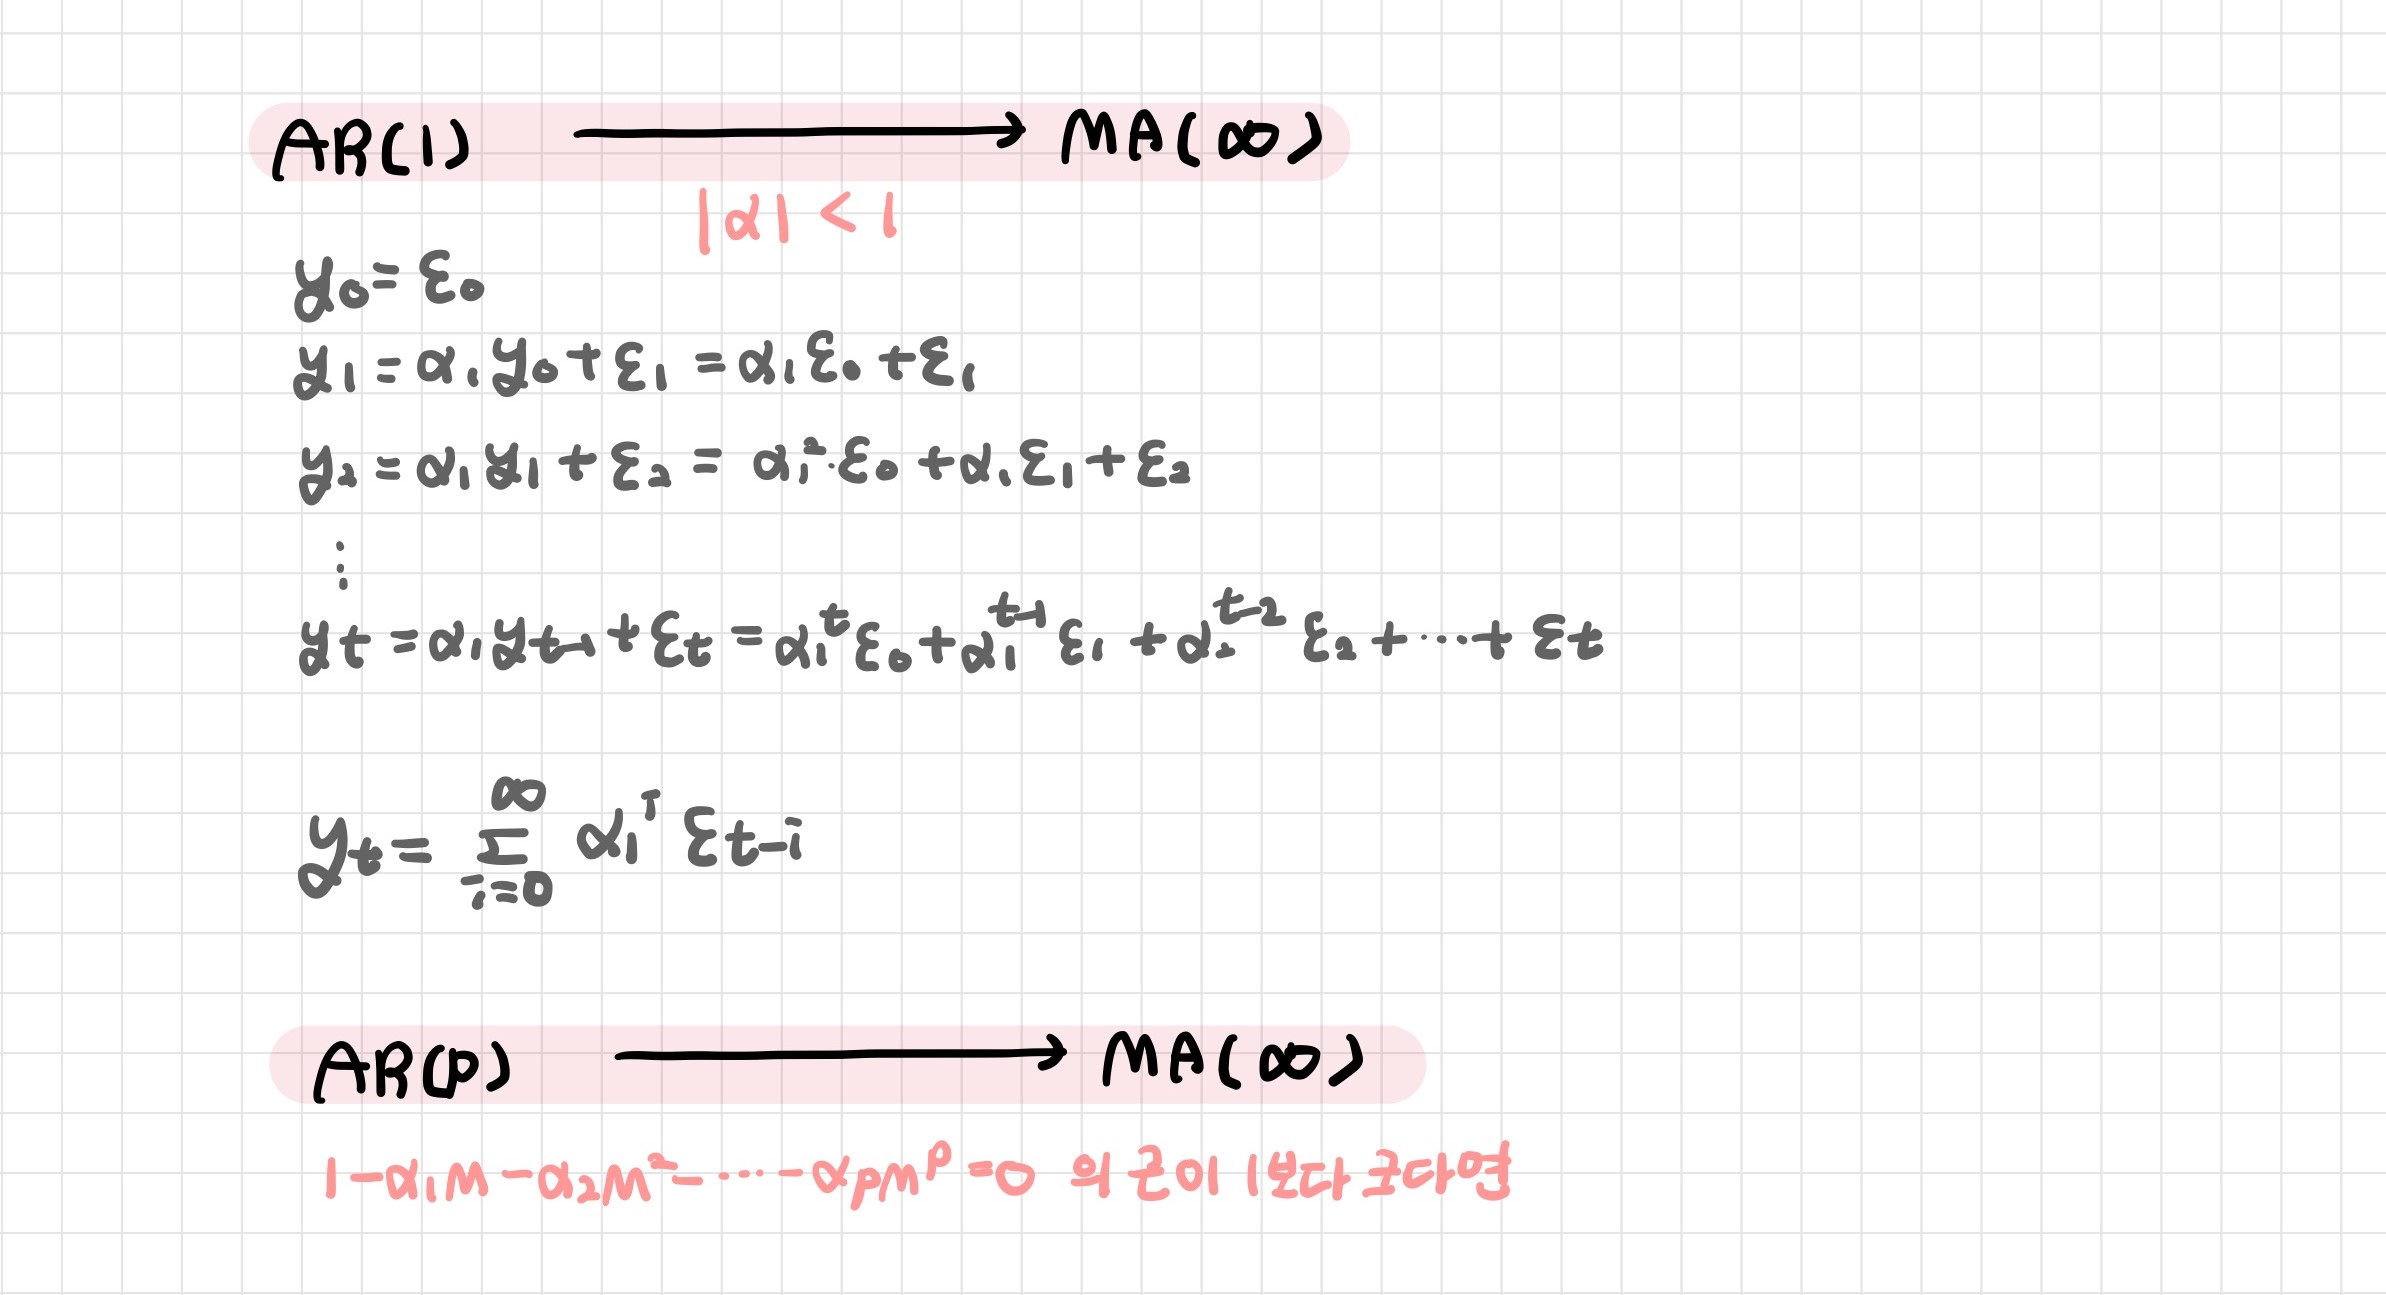 AR(1) ⟶ MA(∞)
|α| < 1
y₀ = ε₀
y₁ = α₁y₀ + ε₁ = α₁ε₀ + ε₁
y₂ = α₁y₁ + ε₂ = α₁²·ε₀ + α₁ε₁ + ε₂
⋮
yt = α₁yt-1 + εt = α₁^t ε₀ + α₁^t-1 ε₁ + α₂^t-2 ε₂ + ⋯ + εt
yt = ∑_{i=0}^{∞} α₁^i εt-i
AR(p) ⟶ MA(∞)
1 - α₁M - α₂M² - ⋯ - αpM^p = 0 의 근이 1보다 크다면